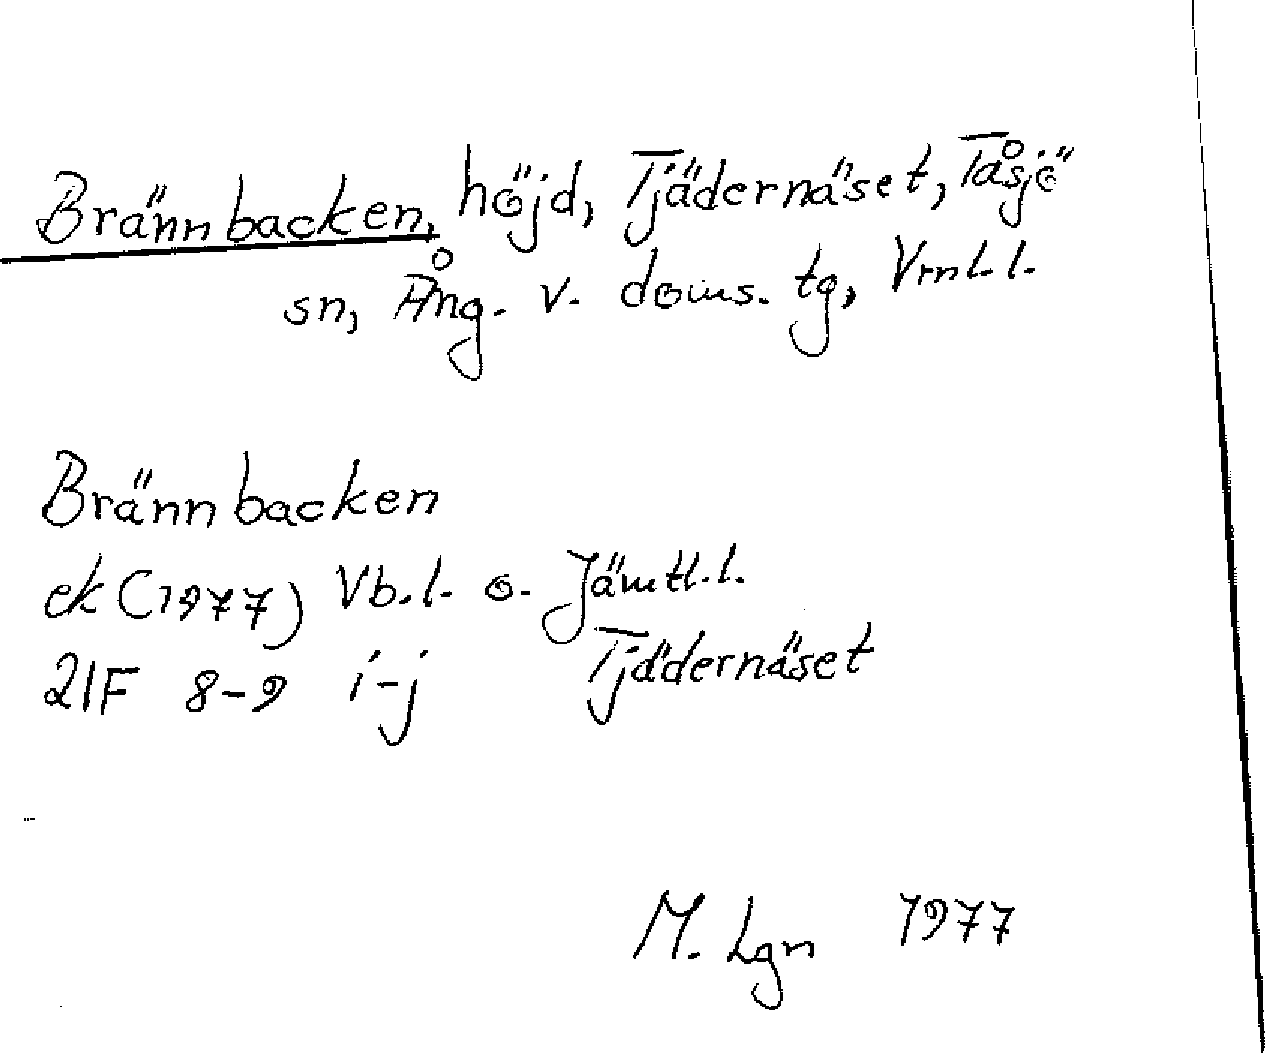 Brännbacken, höjd, Tjädernäset, Tåsjö
sn, Ång. v. doms. tg, Vrnl. l.
Brännbacken
ek (1977) Vb. l. o. Jämtl. l.
21F 8-9 i-j Tjädernäset
M. Lgn 1977